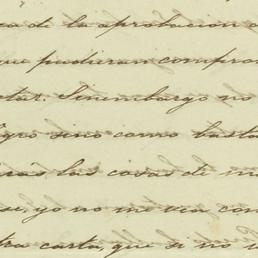 de la aprobacion
que pudieran compro
tar. Sinembargo no
sino como basta
las cosas de m
se, yo no me vea con
tra carta, que si no